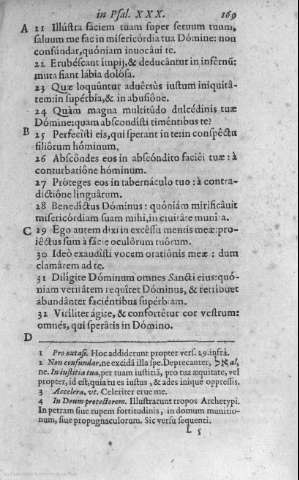 in Psal. XXX. 169
A 21 Illustra faciem tuam super seruum tuum,
saluum me fac in misericórdia tua Dómine: non
confúndar, quóniam inuocáui te.
22 Erubéscant impij, & deducántur in inférnũ:
muta fiant lábia dolósa.
23 Quæ loquúntur aduérsùs iustum iniquitá-
tem: in supérbia, & in abusióne.
24 Quàm magna multitúdo dulcédinis tuæ
Dómine: quam abscondísti timéntibus te?
B 25 Perfecísti eis, qui sperant in te: in conspéctu
filiórum hóminum.
26 Abscõdes eos in abscóndito faciéi tuæ: à
conturbatióne hóminum.
27 Próteges eos in tabernáculo tuo: à contra-
dictióne linguárum.
28 Benedíctus Dóminus: quóniam mirificáuit
misericórdiam suam mihi, in ciuitáte muníta.
C 29 Ego autem dixi in excéssu mentis meæ: pro-
iéctus sum à fácie oculórum tuórum.
30 Ideò exaudísti vocem oratiónis meæ: dum
clamárem ad te.
31 Dilígite Dóminum omnes Sancti eius: quó-
niam veritátem requíret Dóminus, & retríbuet
abundánter faciéntibus supérbiam.
32 Viríliter ágite, & confortétur cor vestrum:
omnés, qui sperátis in Dómino.
D
1 Pro extasi. Hoc addiderunt propter vers. 29. infrà.
2 Non confundar, ne excidã illa spe. Deprecanter, אל al,
ne. In iustitia tua, per tuam iustitiã, pro tua æquitate, vel
propter, id est, quia tu es iustus, & ades iniquè oppressis.
3 Accelera, vt. Celeriter erue me.
4 In Deum protectorem. Illustrarunt tropos Archetypi.
In petram siue rupem fortitudinis, in domum munitio-
num, siue propugnaculorum. Sic versu sequenti.
L 5